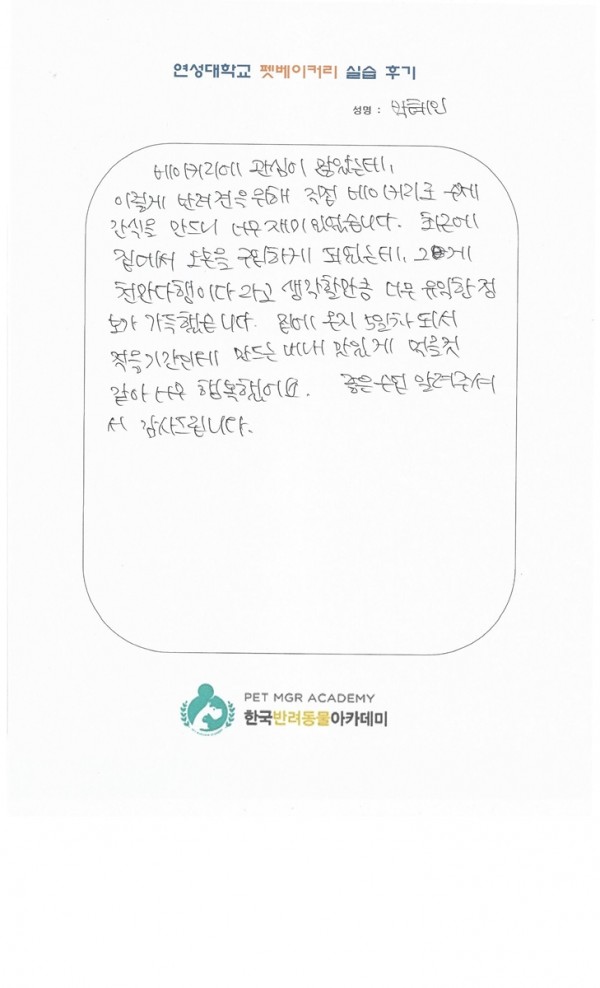 연성대학교 펫베이커리 실습 후기
성명 : 박혜인
베이커리에 관심이 많았는데,
이렇게 반려견을 위해 직접 베이커리로 수제
간식을 만드니 너무 재미있었습니다. 최근에
집에서 오븐을 구입하게 되었는데, 그게
천만다행이다 라고 생각할만큼 너무 유익한 정
보가 가득했습니다. 집에 온지 5일차 되서
적응기간인데 만드는 내내 맛있게 먹을것
같아 너무 행복했어요. 좋은수업 알려주셔
서 감사드립니다.
PET MGR ACADEMY
한국반려동물아카데미